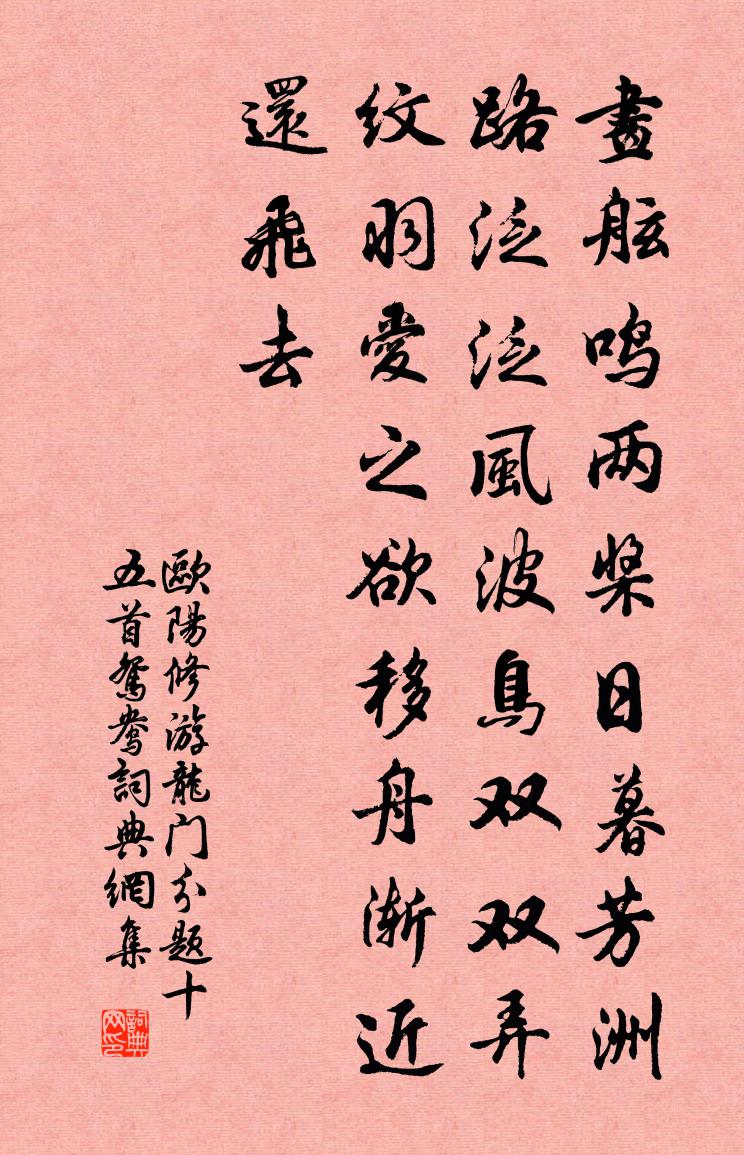 畫舷鳴两槳日暮芳洲
路泛泛風波鳥双双弄
纹羽愛之欲移舟渐近
還飛去
歐陽修游龍门分题十
五首鴛鴦詞典網集
詞典网印